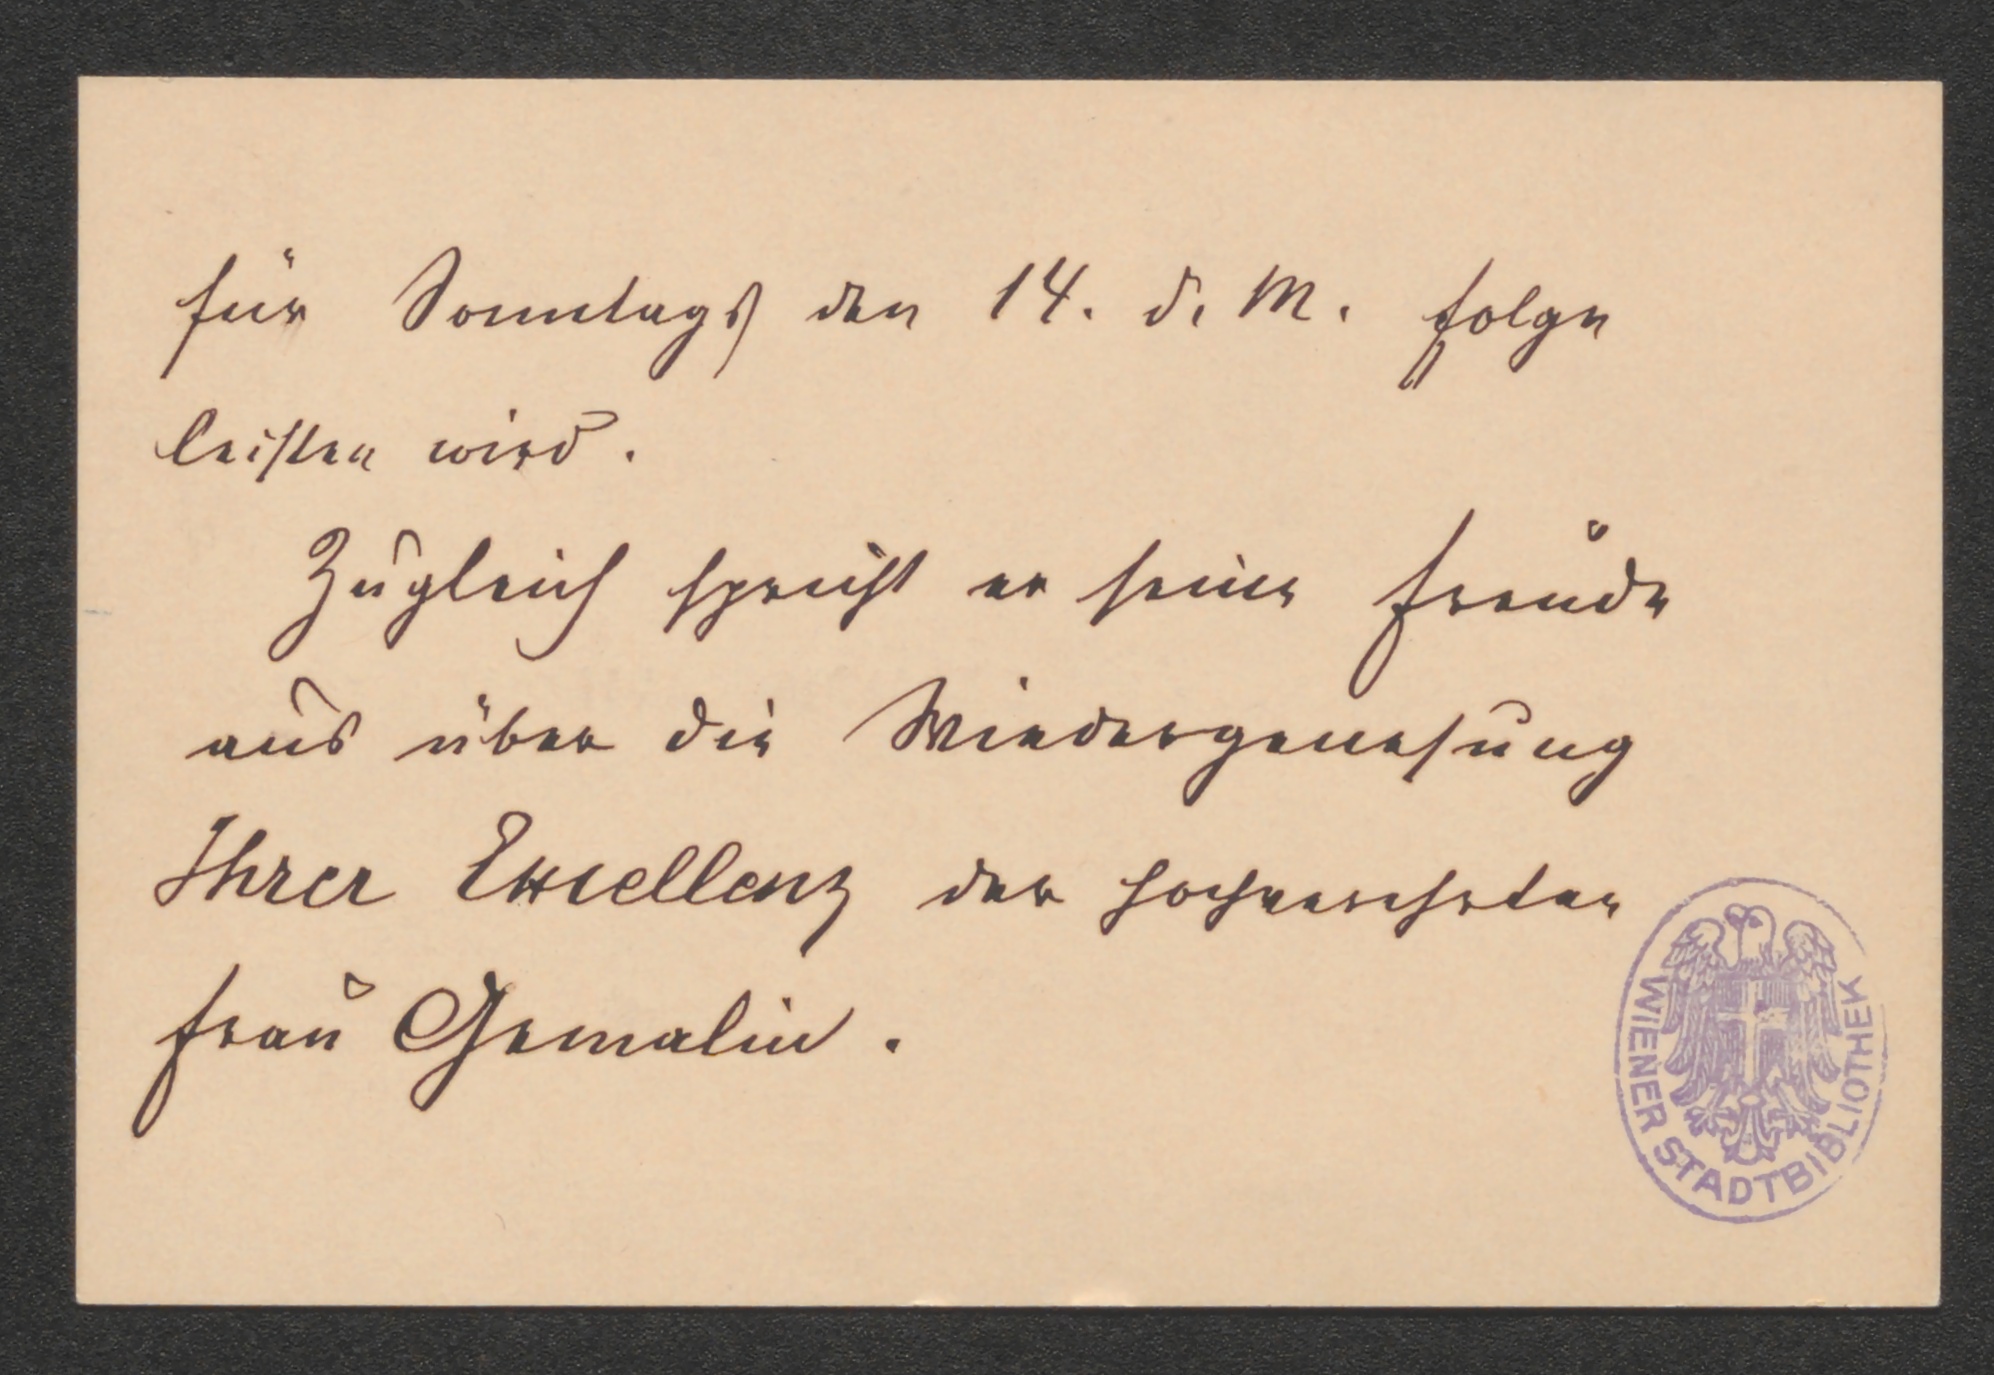 für Sonntags den 14. d. M. folge
leisten wird.
Zugleich spricht er seine Freude
aus über die Wiedergenesung
Ihrer Excellenz der hochverehrten
Frau Gemalin.
WIENER STADTBIBLIOTHEK